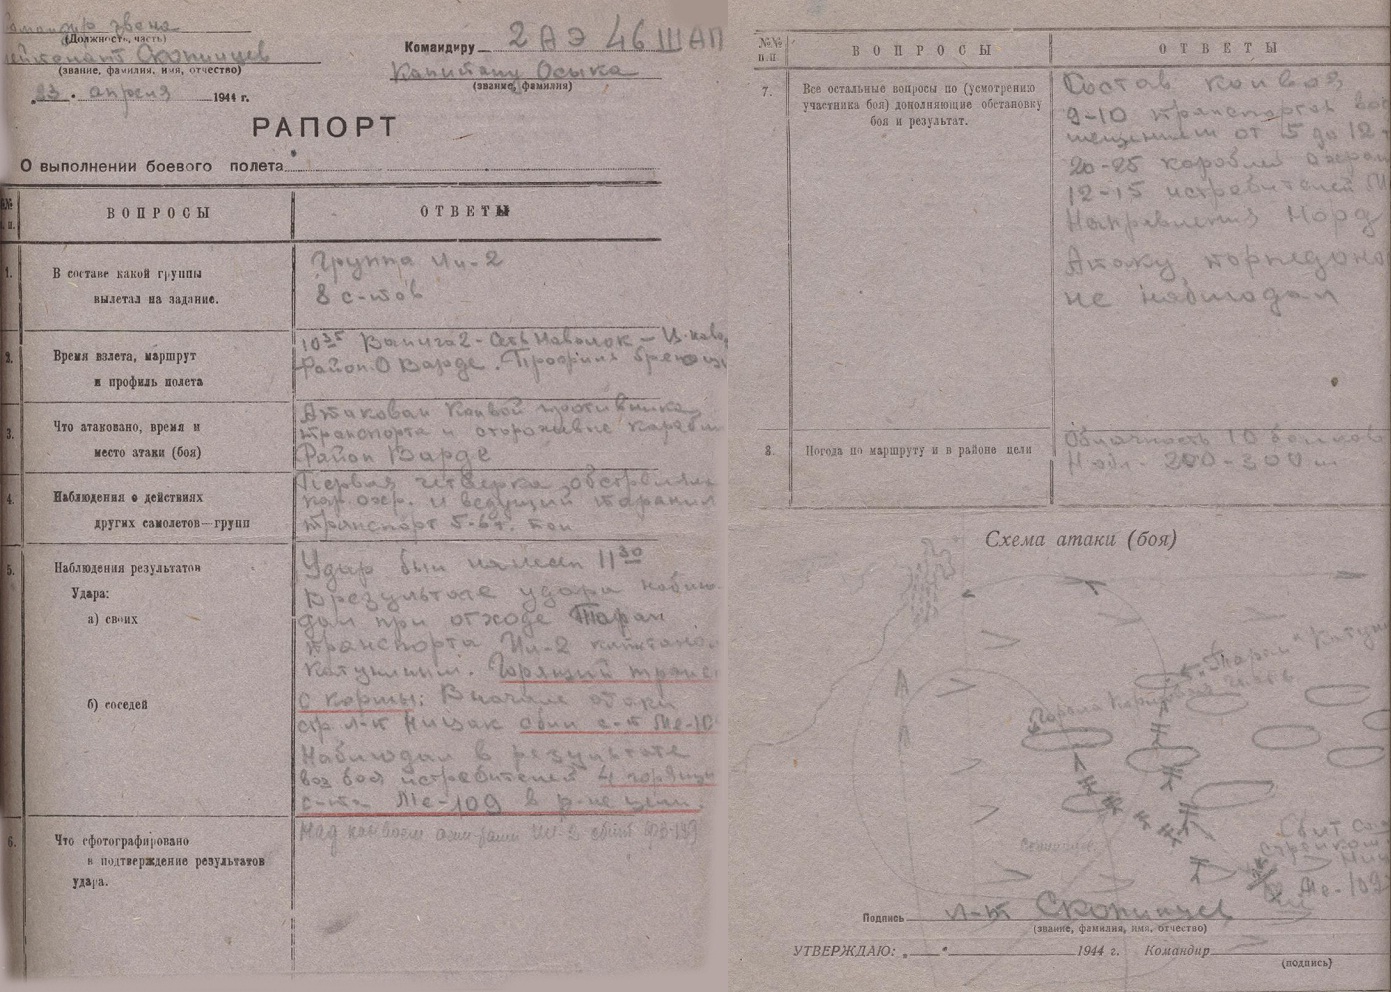 Командир звена
(Должность, часть)
лейтенант Скопинцев
(звание, фамилия, имя, отчество)
„23" апреля 1944 г.
Командиру 2 АЭ 46 ШАП
Капитану Осыка
(звание, фамилия)
РАПОРТ
О выполнении боевого полета
№№ п. п.
ВОПРОСЫ
ОТВЕТЫ
1.
В составе какой группы
вылетал на задание.
Группа Ил-2
8 с-тов
2.
Время взлета, маршрут
и профиль полета
10 35 Ваенга 2 - Сеть Наволок —
Район О Варде. Профиль
3.
Что атаковано, время и
место атаки (боя)
Атаковал конвой противника
транспорта и сторожевые корабли
Район Варде
4.
Наблюдения о действиях
других самолетов—групп
Первая четверка обстреляла
кор. охр. и ведущий таранил
транспорт 5-6 т. тон
5.
Наблюдения результатов
Удара:
а) своих
б) соседей
Удар был нанесен 11 30
В результате удара наблю-
дал при отходе Таран
транспорта Ил-2 капитаном
Катуниным. Горящий транс
с кормы: Вначале атаки
ст л-т Ницак сбил с-т Ме-10
Наблюдал в результате
воз боя истребителей 4 горящи
с-та Ме-109 в р-не цели.
6.
Что сфотографировано
в подтверждение результатов
удара.
Над конвоем
№№ п. п
ВОПРОСЫ
ОТВЕТЫ
7.
Все остальные вопросы по (усмотрению
участника боя) дополняющие обстановку
боя и результат.
Состав конвоя
9-10 транспортов водо
мещением от 5 до 12 т
20-25 кораблей охран
12-15 истребителей М
Направления Норд
Атаку торпедоно
не наблюдал
8.
Погода по маршруту и в районе цели
Облачность 10 баллов
200-300 м
Схема атаки (боя)
Таран Катун
Горела Кормовая часть
Сбит
Ме-109
Подпись л-т Скопинцев
(звание, фамилия, имя, отчество)
УТВЕРЖДАЮ: „ " 1944 г. Командир
(подпись)